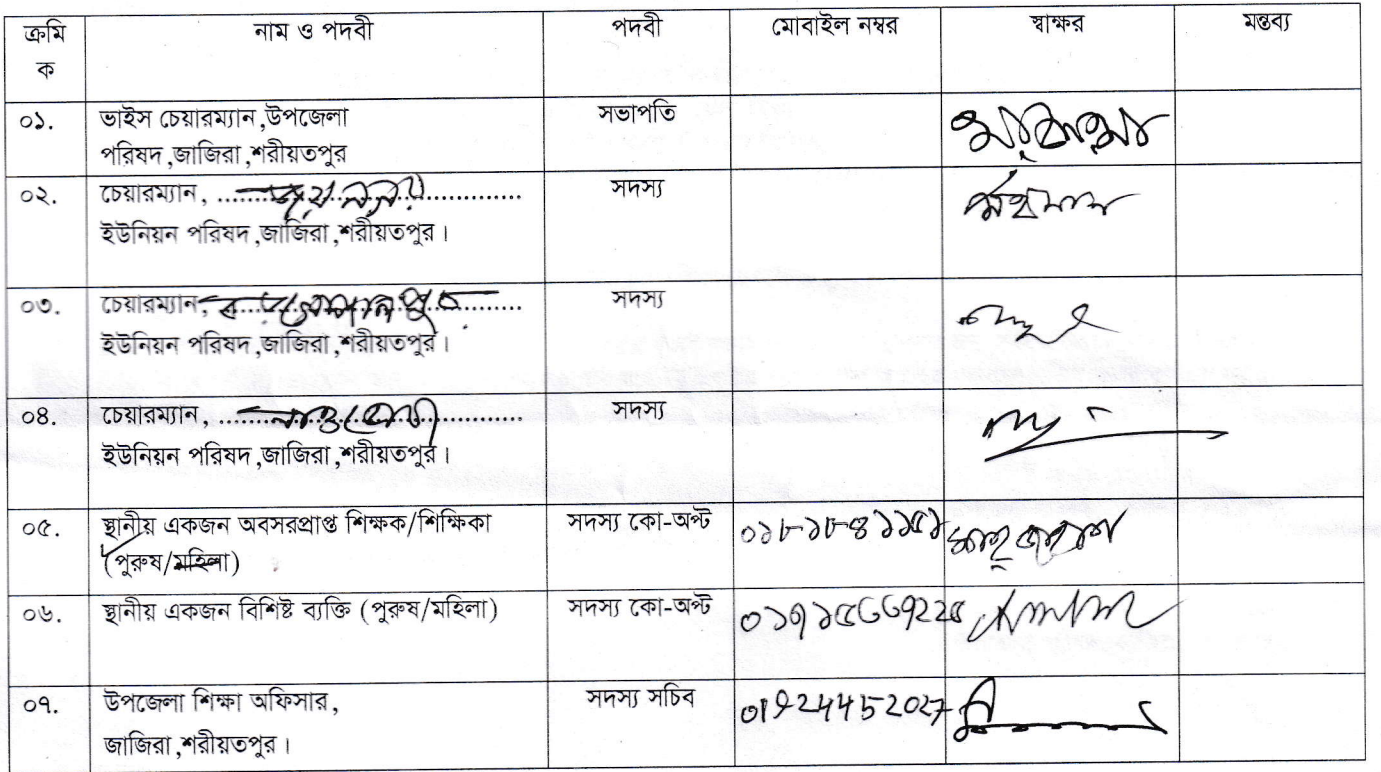 ক্রমি
ক
নাম ও পদবী
পদবী
মোবাইল নম্বর
স্বাক্ষর
মন্তব্য
০১.
ভাইস চেয়ারম্যান,উপজেলা
পরিষদ,জাজিরা,শরীয়তপুর
সভাপতি
০২.
চেয়ারম্যান, জয়নগর
ইউনিয়ন পরিষদ,জাজিরা,শরীয়তপুর।
সদস্য
০৩.
চেয়ারম্যান, বড়গোপালপুর
ইউনিয়ন পরিষদ,জাজিরা,শরীয়তপুর।
সদস্য
০৪.
চেয়ারম্যান,
ইউনিয়ন পরিষদ,জাজিরা,শরীয়তপুর।
সদস্য
০৫.
স্থানীয় একজন অবসরপ্রাপ্ত শিক্ষক/শিক্ষিকা
(পুরুষ/মহিলা)
সদস্য কো-অপ্ট
০৬.
স্থানীয় একজন বিশিষ্ট ব্যক্তি (পুরুষ/মহিলা)
সদস্য কো-অপ্ট
০৭.
উপজেলা শিক্ষা অফিসার,
জাজিরা,শরীয়তপুর।
সদস্য সচিব
01924452027